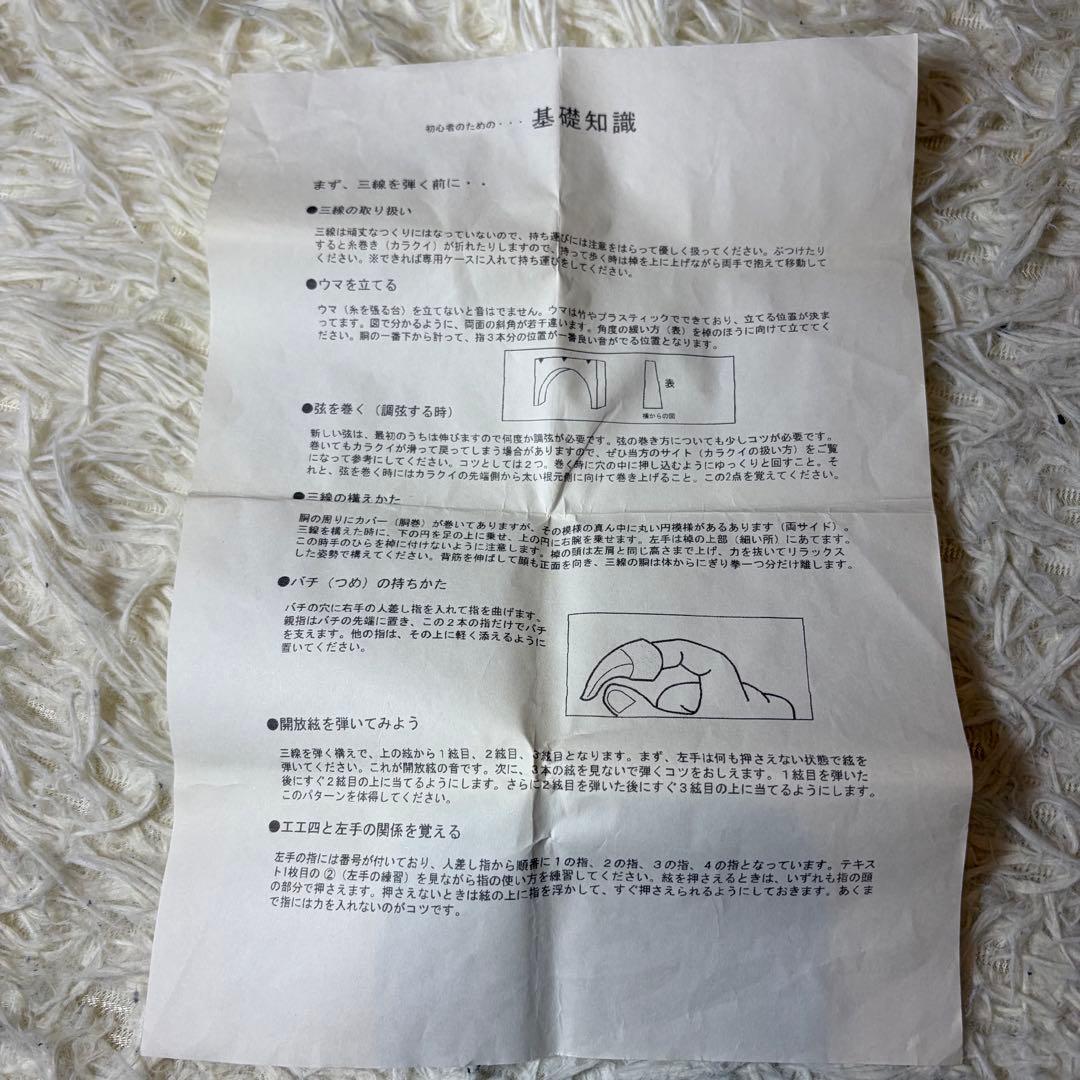 初心者のための・・・ 基礎知識
まず、三線を弾く前に・・
●三線の取り扱い
三線は頑丈なつくりにはなっていないので、持ち運びには注意をはらって優しく扱ってください。ぶつけたり
すると糸巻き（カラクイ）が折れたりしますので、持って歩く時は棹を上に上げながら両手で抱えて移動して
ください。※できれば専用ケースに入れて持ち運びをしてください。
●ウマを立てる
ウマ（糸を張る台）を立てないと音はでません。ウマは竹やプラスティックでできており、立てる位置が決ま
ってます。図で分かるように、両面の斜角が若干違います。角度の緩い方（表）を棹のほうに向けて立ててく
ださい。胴の一番下から計って、指３本分の位置が一番良い音がでる位置となります。
表
横からの図
●弦を巻く（調弦する時）
新しい弦は、最初のうちは伸びますので何度か調弦が必要です。弦の巻き方についても少しコツが必要です。
巻いてもカラクイが滑って戻ってしまう場合がありますので、ぜひ当方のサイト（カラクイの扱い方）をご覧
になって参考にしてください。コツとしては２つ。巻く時に穴の中に押し込むようにゆっくりと回すこと。そ
れと、弦を巻く時にはカラクイの先端側から太い根元側に向けて巻き上げること。この2点を覚えてください。
●三線の構えかた
胴の周りにカバー（胴巻）が巻いてありますが、その模様の真ん中に丸い円模様があるあります（両サイド）。
三線を構えた時に、下の円を足の上に乗せ、上の円に右腕を乗せます。左手は棹の上部（細い所）にあてます。
この時手のひらを棹に付けないように注意します。棹の頭は左肩と同じ高さまで上げ、力を抜いてリラックス
した姿勢で構えてください。背筋を伸ばして顔も正面を向き、三線の胴は体からにぎり拳一つ分だけ離します。
●バチ（つめ）の持ちかた
バチの穴に右手の人差し指を入れて指を曲げます、
親指はバチの先端に置き、この２本の指だけでバチ
を支えます。他の指は、その上に軽く添えるように
置いてください。
●開放絃を弾いてみよう
三線を弾く構えで、上の絃から１絃目、２絃目、３絃目となります。まず、左手は何も押さえない状態で絃を
弾いてください。これが開放絃の音です。次に、３本の絃を見ないで弾くコツをおしえます。１絃目を弾いた
後にすぐ２絃目の上に当てるようにします。さらに２絃目を弾いた後にすぐ３絃目の上に当てるようにします。
このパターンを体得してください。
●工工四と左手の関係を覚える
左手の指には番号が付いており、人差し指から順番に１の指、２の指、３の指、４の指となっています。テキス
ト1枚目の ②（左手の練習）を見ながら指の使い方を練習してください。絃を押さえるときは、いずれも指の頭
の部分で押さえます。押さえないときは絃の上に指を浮かして、すぐ押さえられるようにしておきます。あくま
で指には力を入れないのがコツです。